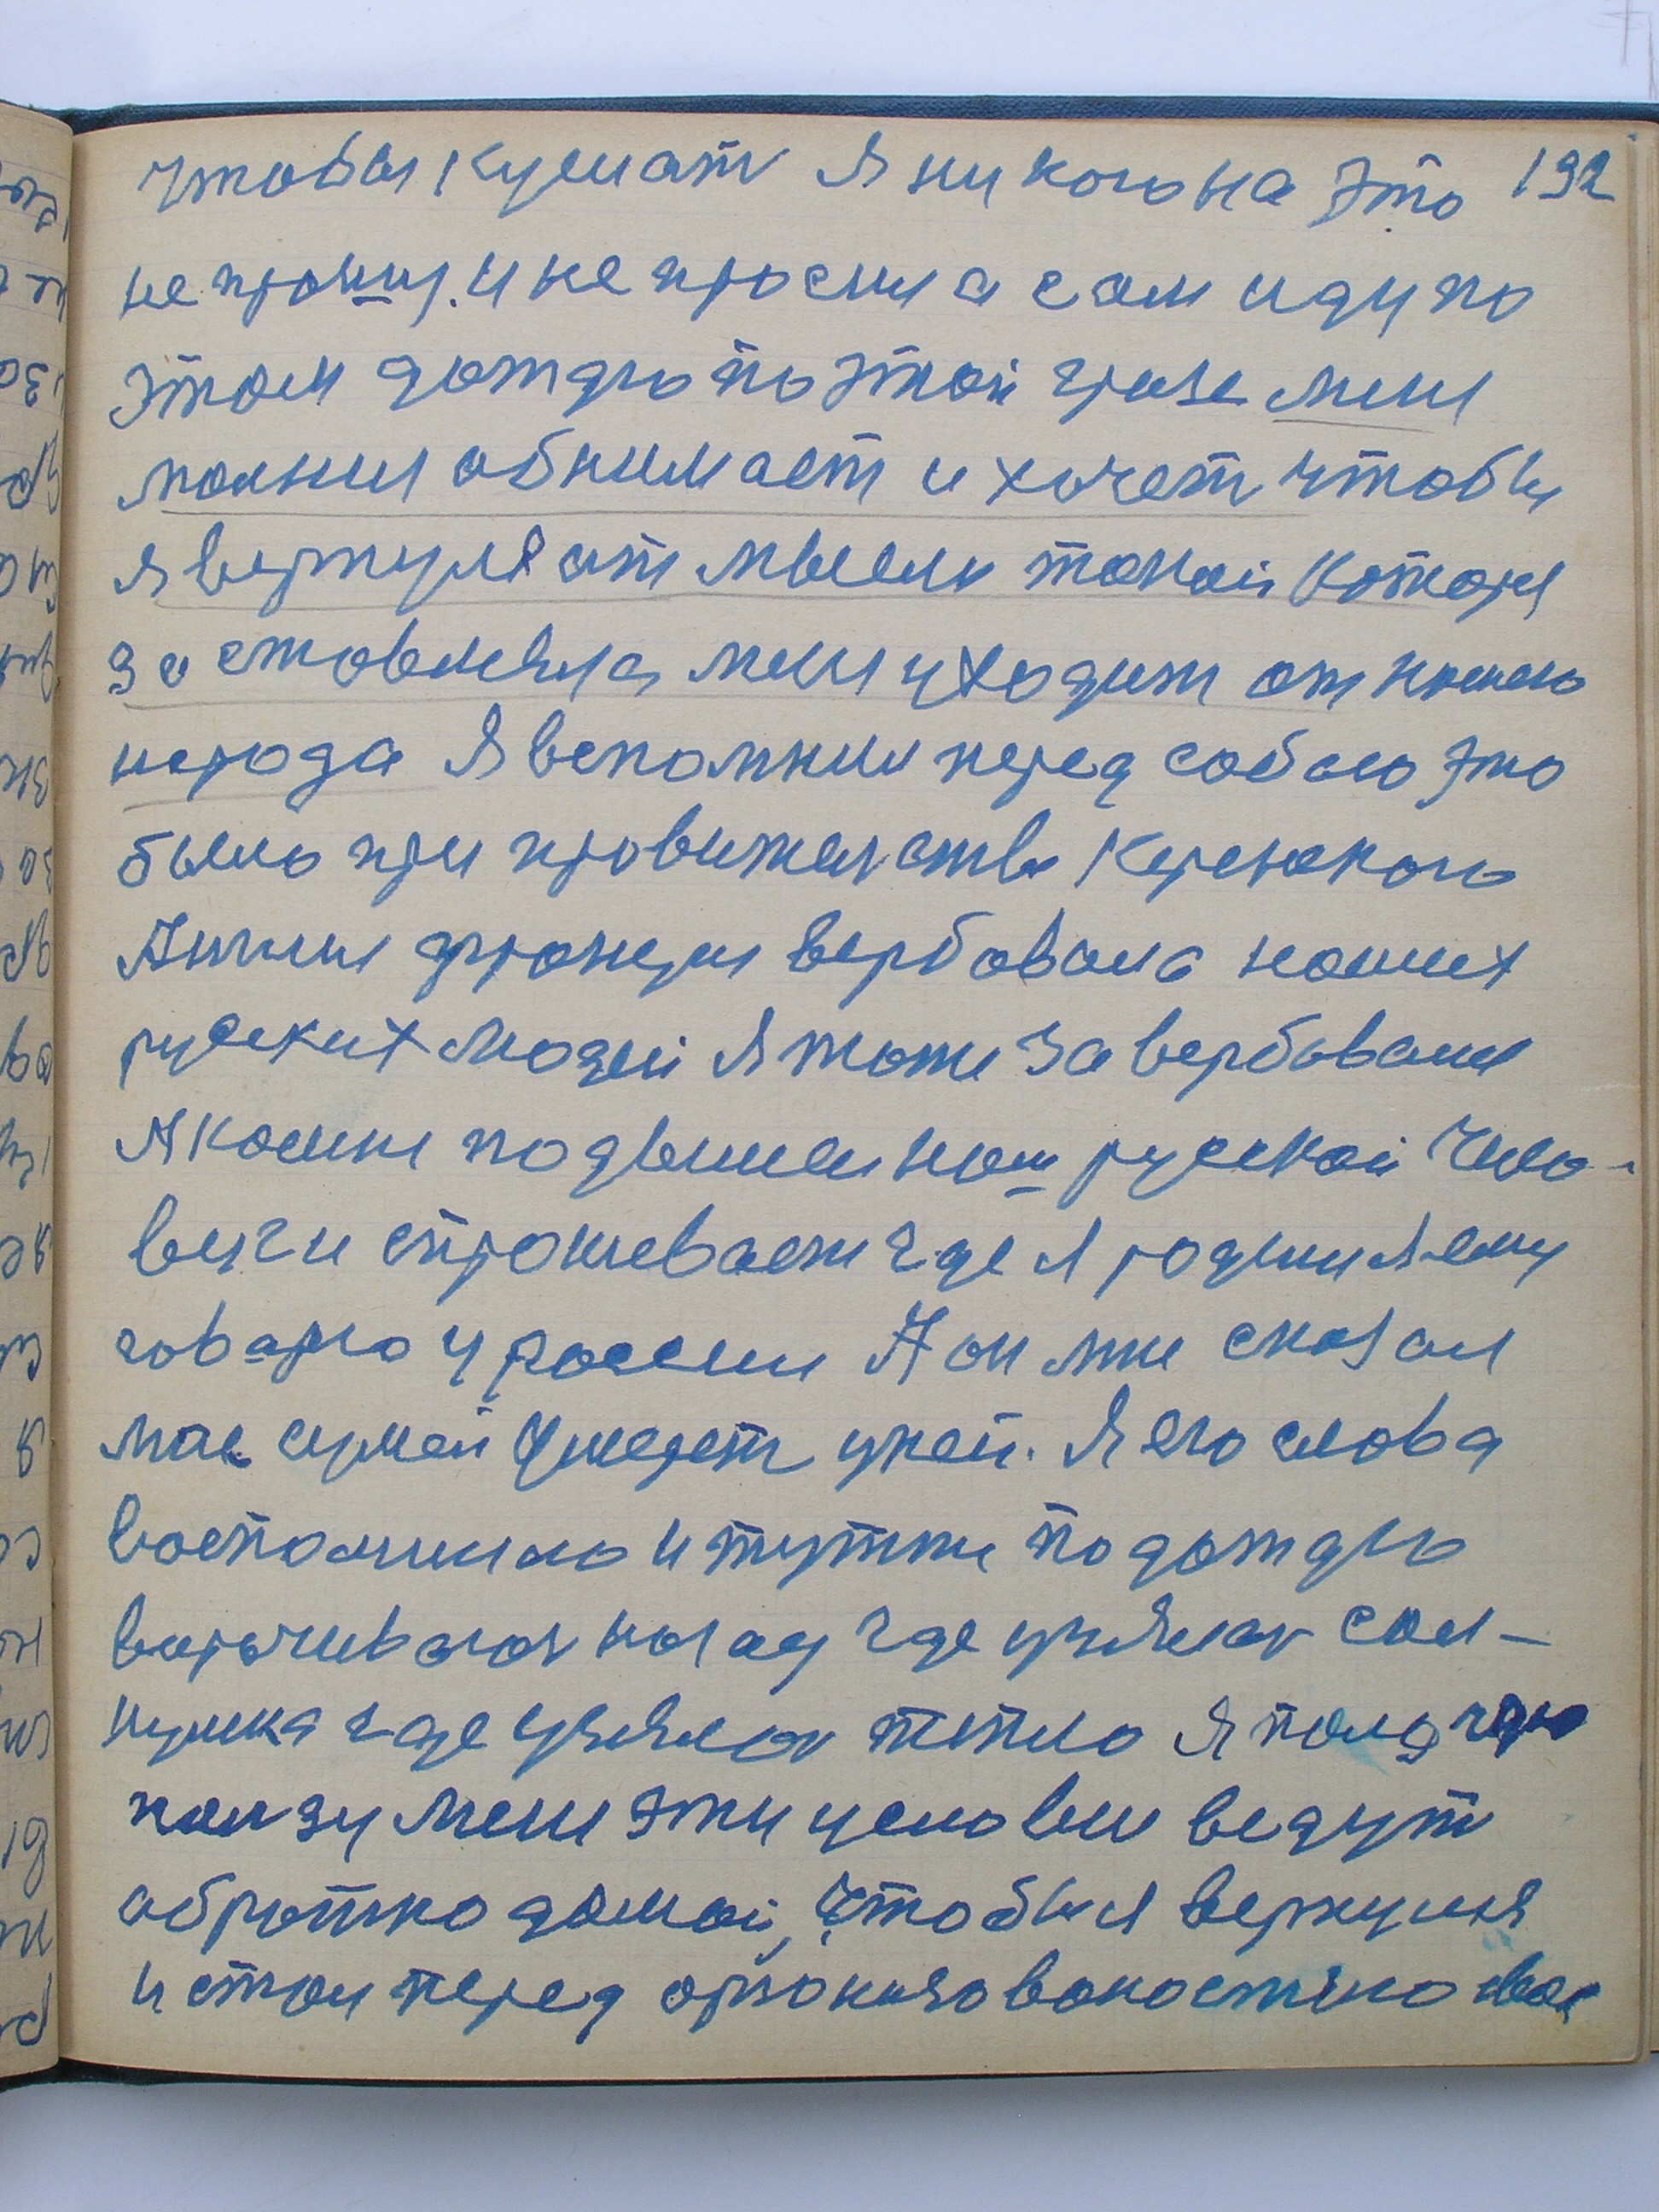 чтобы кушат я ни кого на это 192
не прошу. и не просил а сам иду по
этом дождю по этой грязе мене
молния обнимает и хочет чтобы
я вернулся от мысли такой котора
заставляла мене уходит от нашего
народа Я вспомнил перед собою это
было при провительстве Керенского
Англия франция вербовала наших
руских людей Я тоже завербовался
А ко мне подышел наш руской чило-
век и спрошевает где я родился я ему
говарю у россии А он мне сказал
мол сумей умерет у ней. Я его слова
воспоминаю и тут же по дождю
ворочиваюсь назад где узялось сол-
нушка где узялось тепло Я получаю
ползу мене эти условия ведут
обратно домой, чтобы я вернулся
и стал перед организованостяю